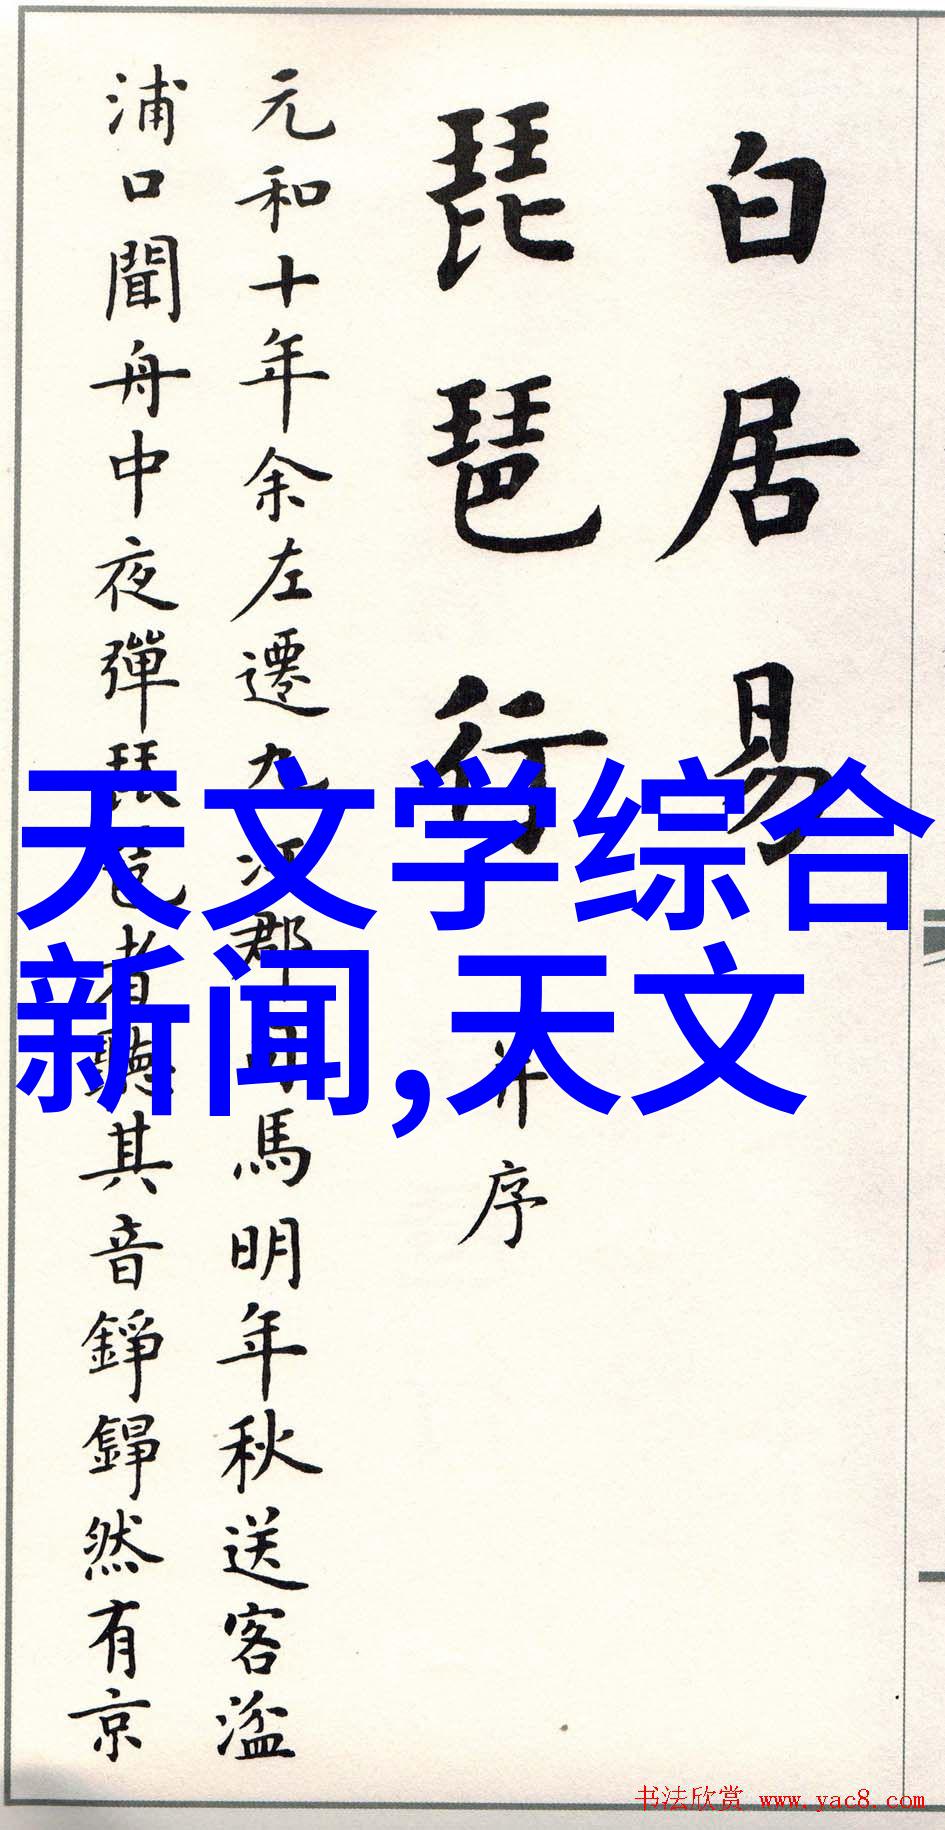 白居易
琵琶行 并序
元和十年余左遷九江郡司馬明年秋送客湓
浦口聞舟中夜彈琵琶者聽其音錚錚然有京
天文学综合
新闻,天文
书法欣赏 www.yac8.com